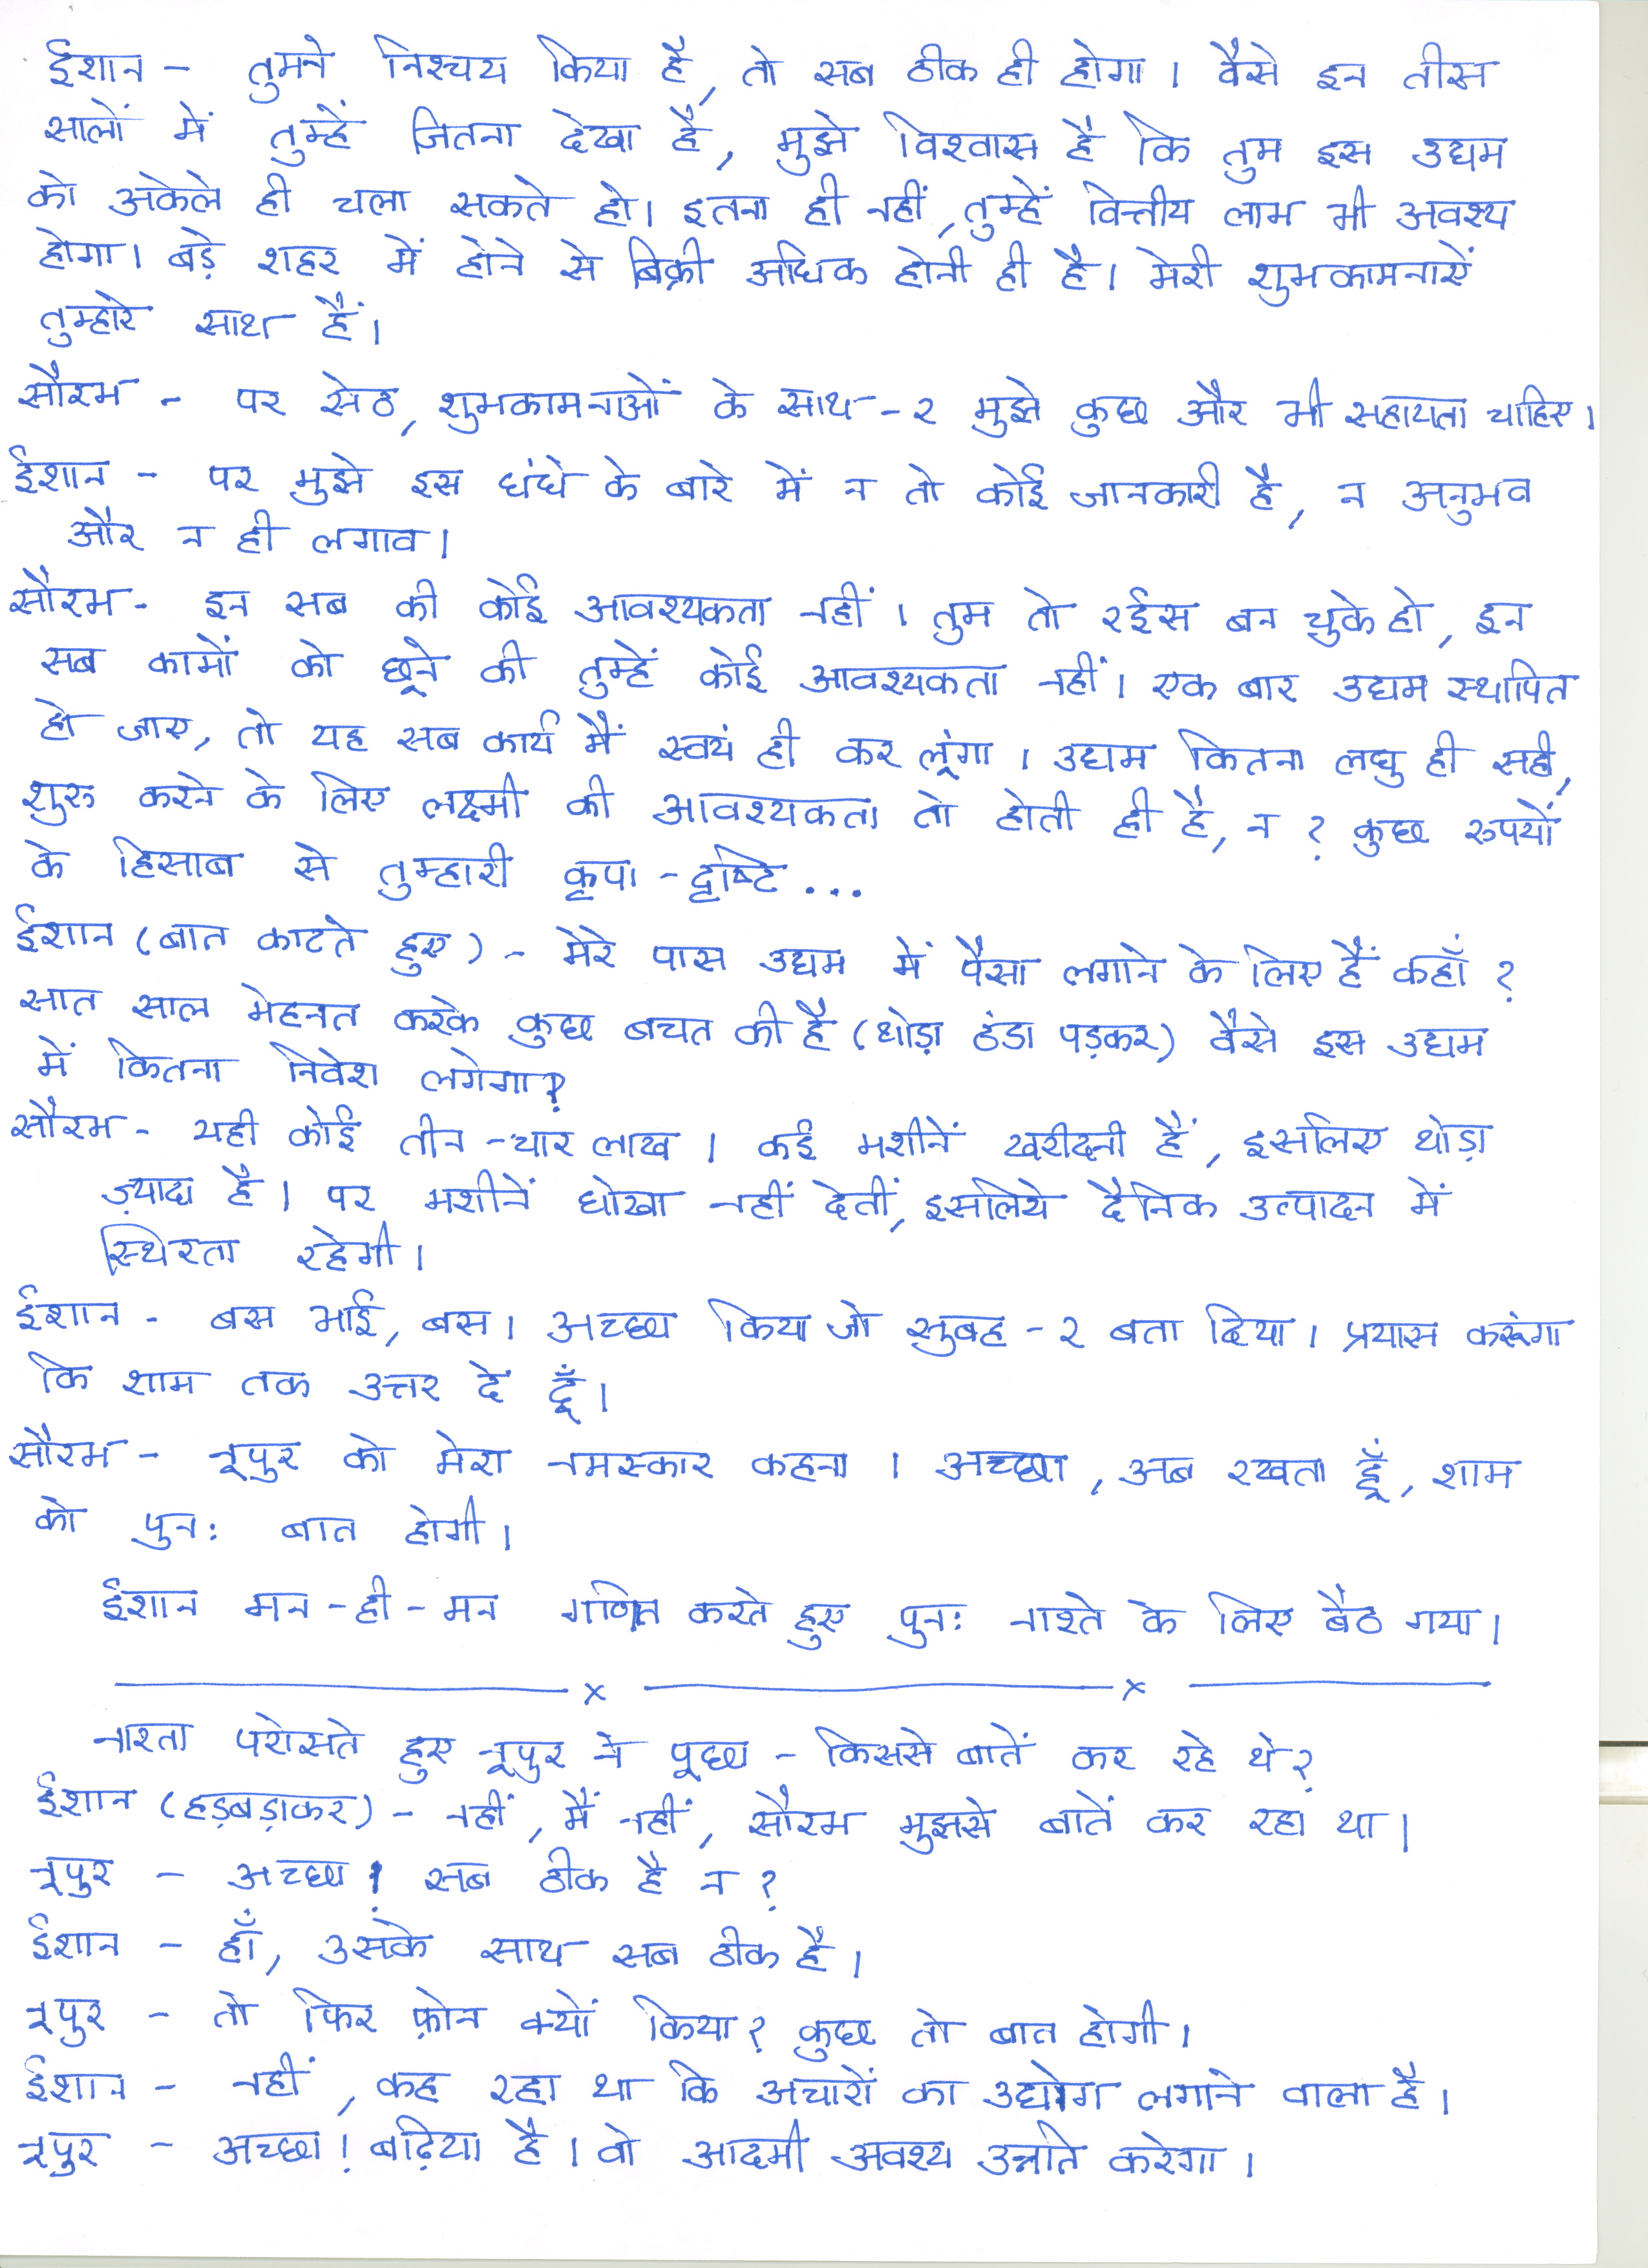 ईशान - तुमने निश्चय किया है, तो सब ठीक ही होगा। वैसे इन तीस
सालों में तुम्हें जितना देखा है, मुझे विश्वास है कि तुम इस उद्यम
को अकेले ही चला सकते हो। इतना ही नहीं, तुम्हें वित्तीय लाभ भी अवश्य
होगा। बड़े शहर में होने से बिक्री अधिक होनी ही है। मेरी शुभकामनाएँ
तुम्हारे साथ हैं।
सौरभ - पर सेठ, शुभकामनाओं के साथ-२ मुझे कुछ और भी सहायता चाहिए।
ईशान - पर मुझे इस धंधे के बारे में न तो कोई जानकारी है, न अनुभव
और न ही लगाव।
सौरभ - इन सब की कोई आवश्यकता नहीं। तुम तो रईस बन चुके हो, इन
सब कामों को छूने की तुम्हें कोई आवश्यकता नहीं। एक बार उद्यम स्थापित
हो जाए, तो यह सब कार्य मैं स्वयं ही कर लूंगा। उद्यम कितना लघु ही सही,
शुरू करने के लिए लक्ष्मी की आवश्यकता तो होती ही है, न? कुछ रुपयों
के हिसाब से तुम्हारी कृपा-दृष्टि...
ईशान (बात काटते हुए) - मेरे पास उद्यम में पैसा लगाने के लिए हैं कहाँ?
सात साल मेहनत करके कुछ बचत की है (थोड़ा ठंडा पड़कर) वैसे इस उद्यम
में कितना निवेश लगेगा?
सौरभ - यही कोई तीन-चार लाख। कई मशीनें खरीदनी हैं, इसलिए थोड़ा
ज़्यादा है। पर मशीनें धोखा नहीं देतीं, इसलिये दैनिक उत्पादन में
स्थिरता रहेगी।
ईशान - बस भाई, बस। अच्छा किया जो सुबह-२ बता दिया। प्रयास करूंगा
कि शाम तक उत्तर दे दूँ।
सौरभ - नूपुर को मेरा नमस्कार कहना। अच्छा, अब रखता हूँ, शाम
को पुनः बात होगी।
ईशान मन-ही-मन गणित करते हुए पुनः नाश्ते के लिए बैठ गया।
———x———x———
नाश्ता परोसते हुए नूपुर ने पूछा - किससे बातें कर रहे थे?
ईशान (हड़बड़ाकर) - नहीं, मैं नहीं, सौरभ मुझसे बातें कर रहा था।
नूपुर - अच्छा! सब ठीक है न?
ईशान - हाँ, उसके साथ सब ठीक है।
नूपुर - तो फिर फ़ोन क्यों किया? कुछ तो बात होगी।
ईशान - नहीं, कह रहा था कि अचारों का उद्योग लगाने वाला है।
नूपुर - अच्छा! बढ़िया है। वो आदमी अवश्य उन्नति करेगा।